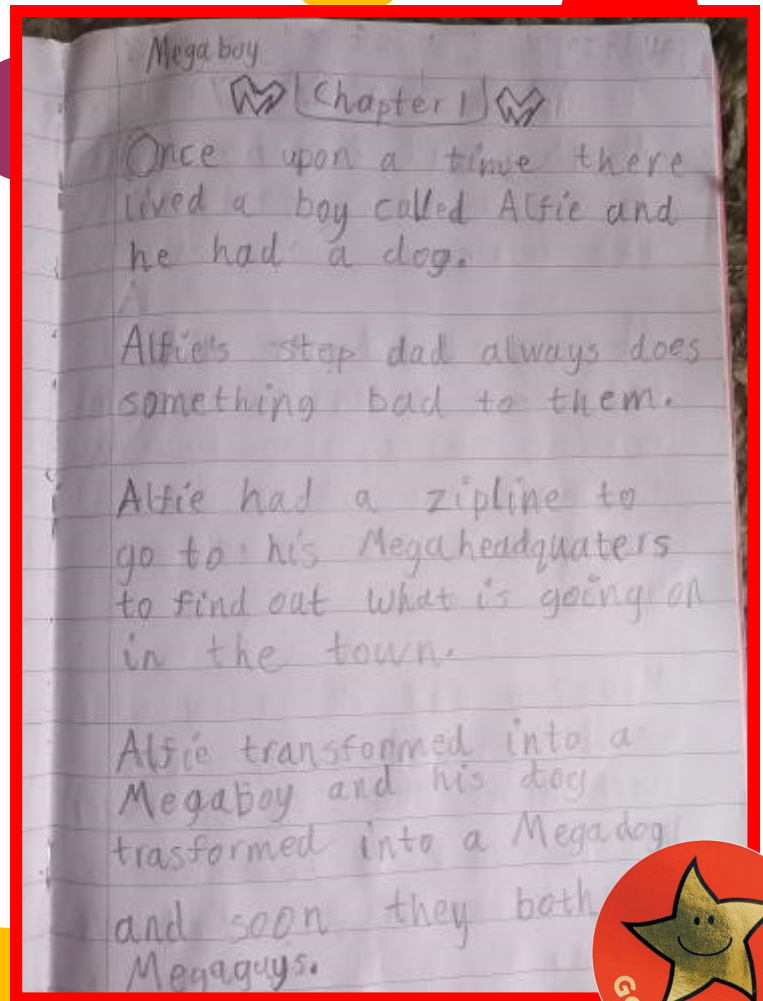 Mega boy
Chapter 1
Once upon a time there
lived a boy called Alfie and
he had a dog.
Alfie's step dad always does
something bad to them.
Alfie had a zipline to
go to his Megaheadquaters
to find out what is going on
in the town.
Alfie transformed into a
Megaboy and his dog
trasformed into a Megadog
and soon they both
Megaguys.